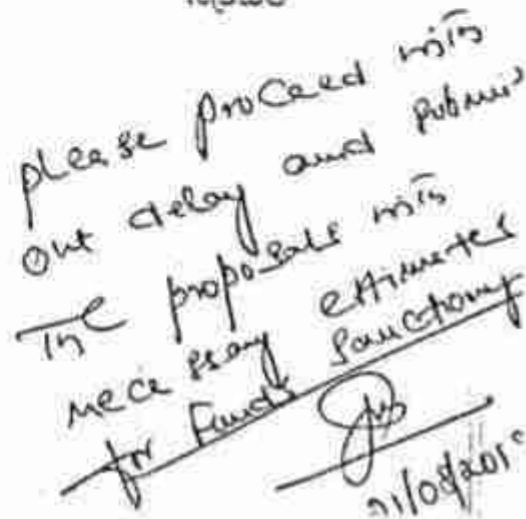 please proceed with
out delay and submit
The proposals with
necessary estimates
for Funds Sanctiong